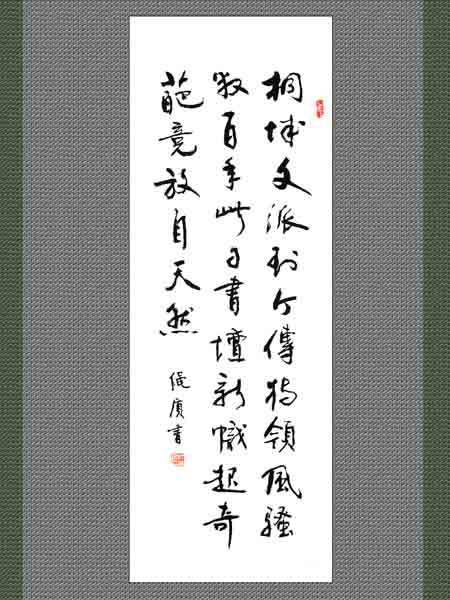 桐城文派到今傳独領風騷
數百年此日書壇新幟起奇
葩竟放自天然
書